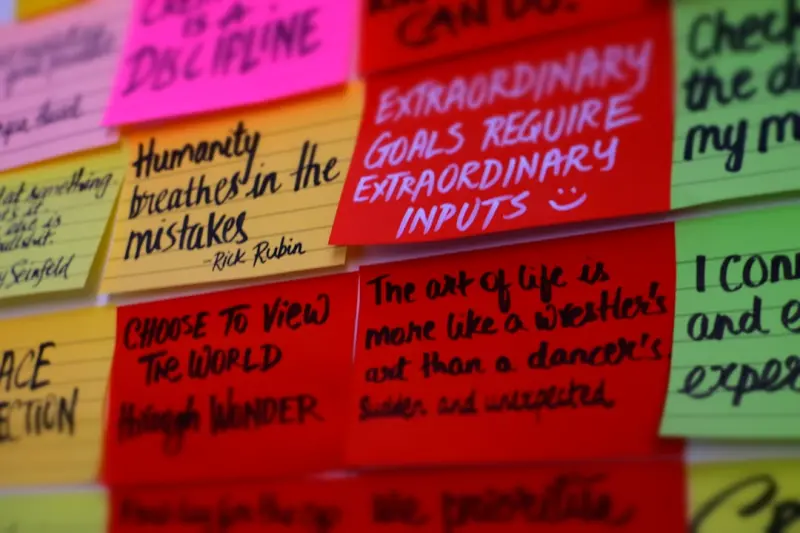 IS A
DISCIPLINE
CAN DO.
EXTRAORDINARY
GOALS REQUIRE
EXTRAORDINARY
INPUTS
Check
the d
my m
Humanity
breathes in the
mistakes
-Rick Rubin
something.
is
Seinfeld
I con
and e
exper
CHOOSE TO VIEW
THE WORLD
through WONDER
The art of life is
more like a wrestler's
art than a dancer's
Sudden and unexpected
ACE
ECTION
for the
We prioritise